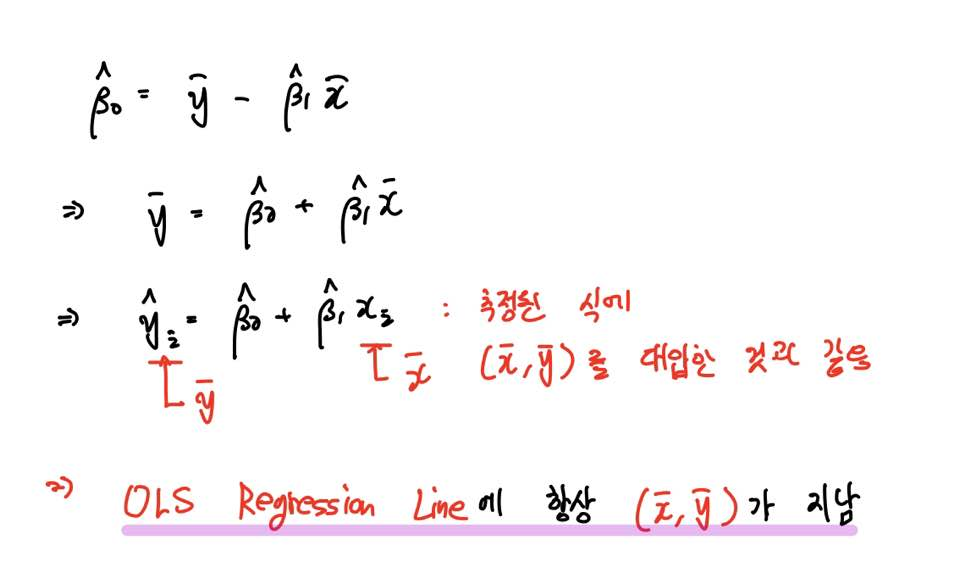 β̂₀ = ȳ - β̂₁ x̄
⇒ ȳ = β̂₀ + β̂₁ x̄
⇒ ŷᵢ = β̂₀ + β̂₁ xᵢ : 추정된 식에
ȳ x̄ (x̄, ȳ)를 대입한 것과 같음
⇒ OLS Regression Line에 항상 (x̄, ȳ)가 지남